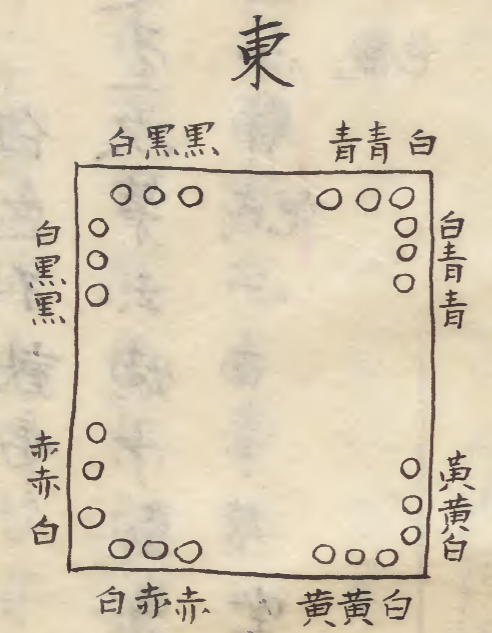 東
白黒黒
青青白
白黒黒
白青青
赤赤白
黄黄白
白赤赤
黄黄白